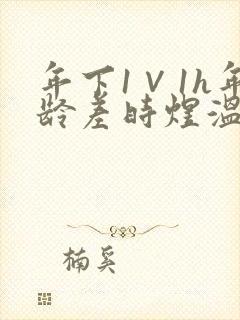 年下1V1h年
龄差时煜温
楠奚